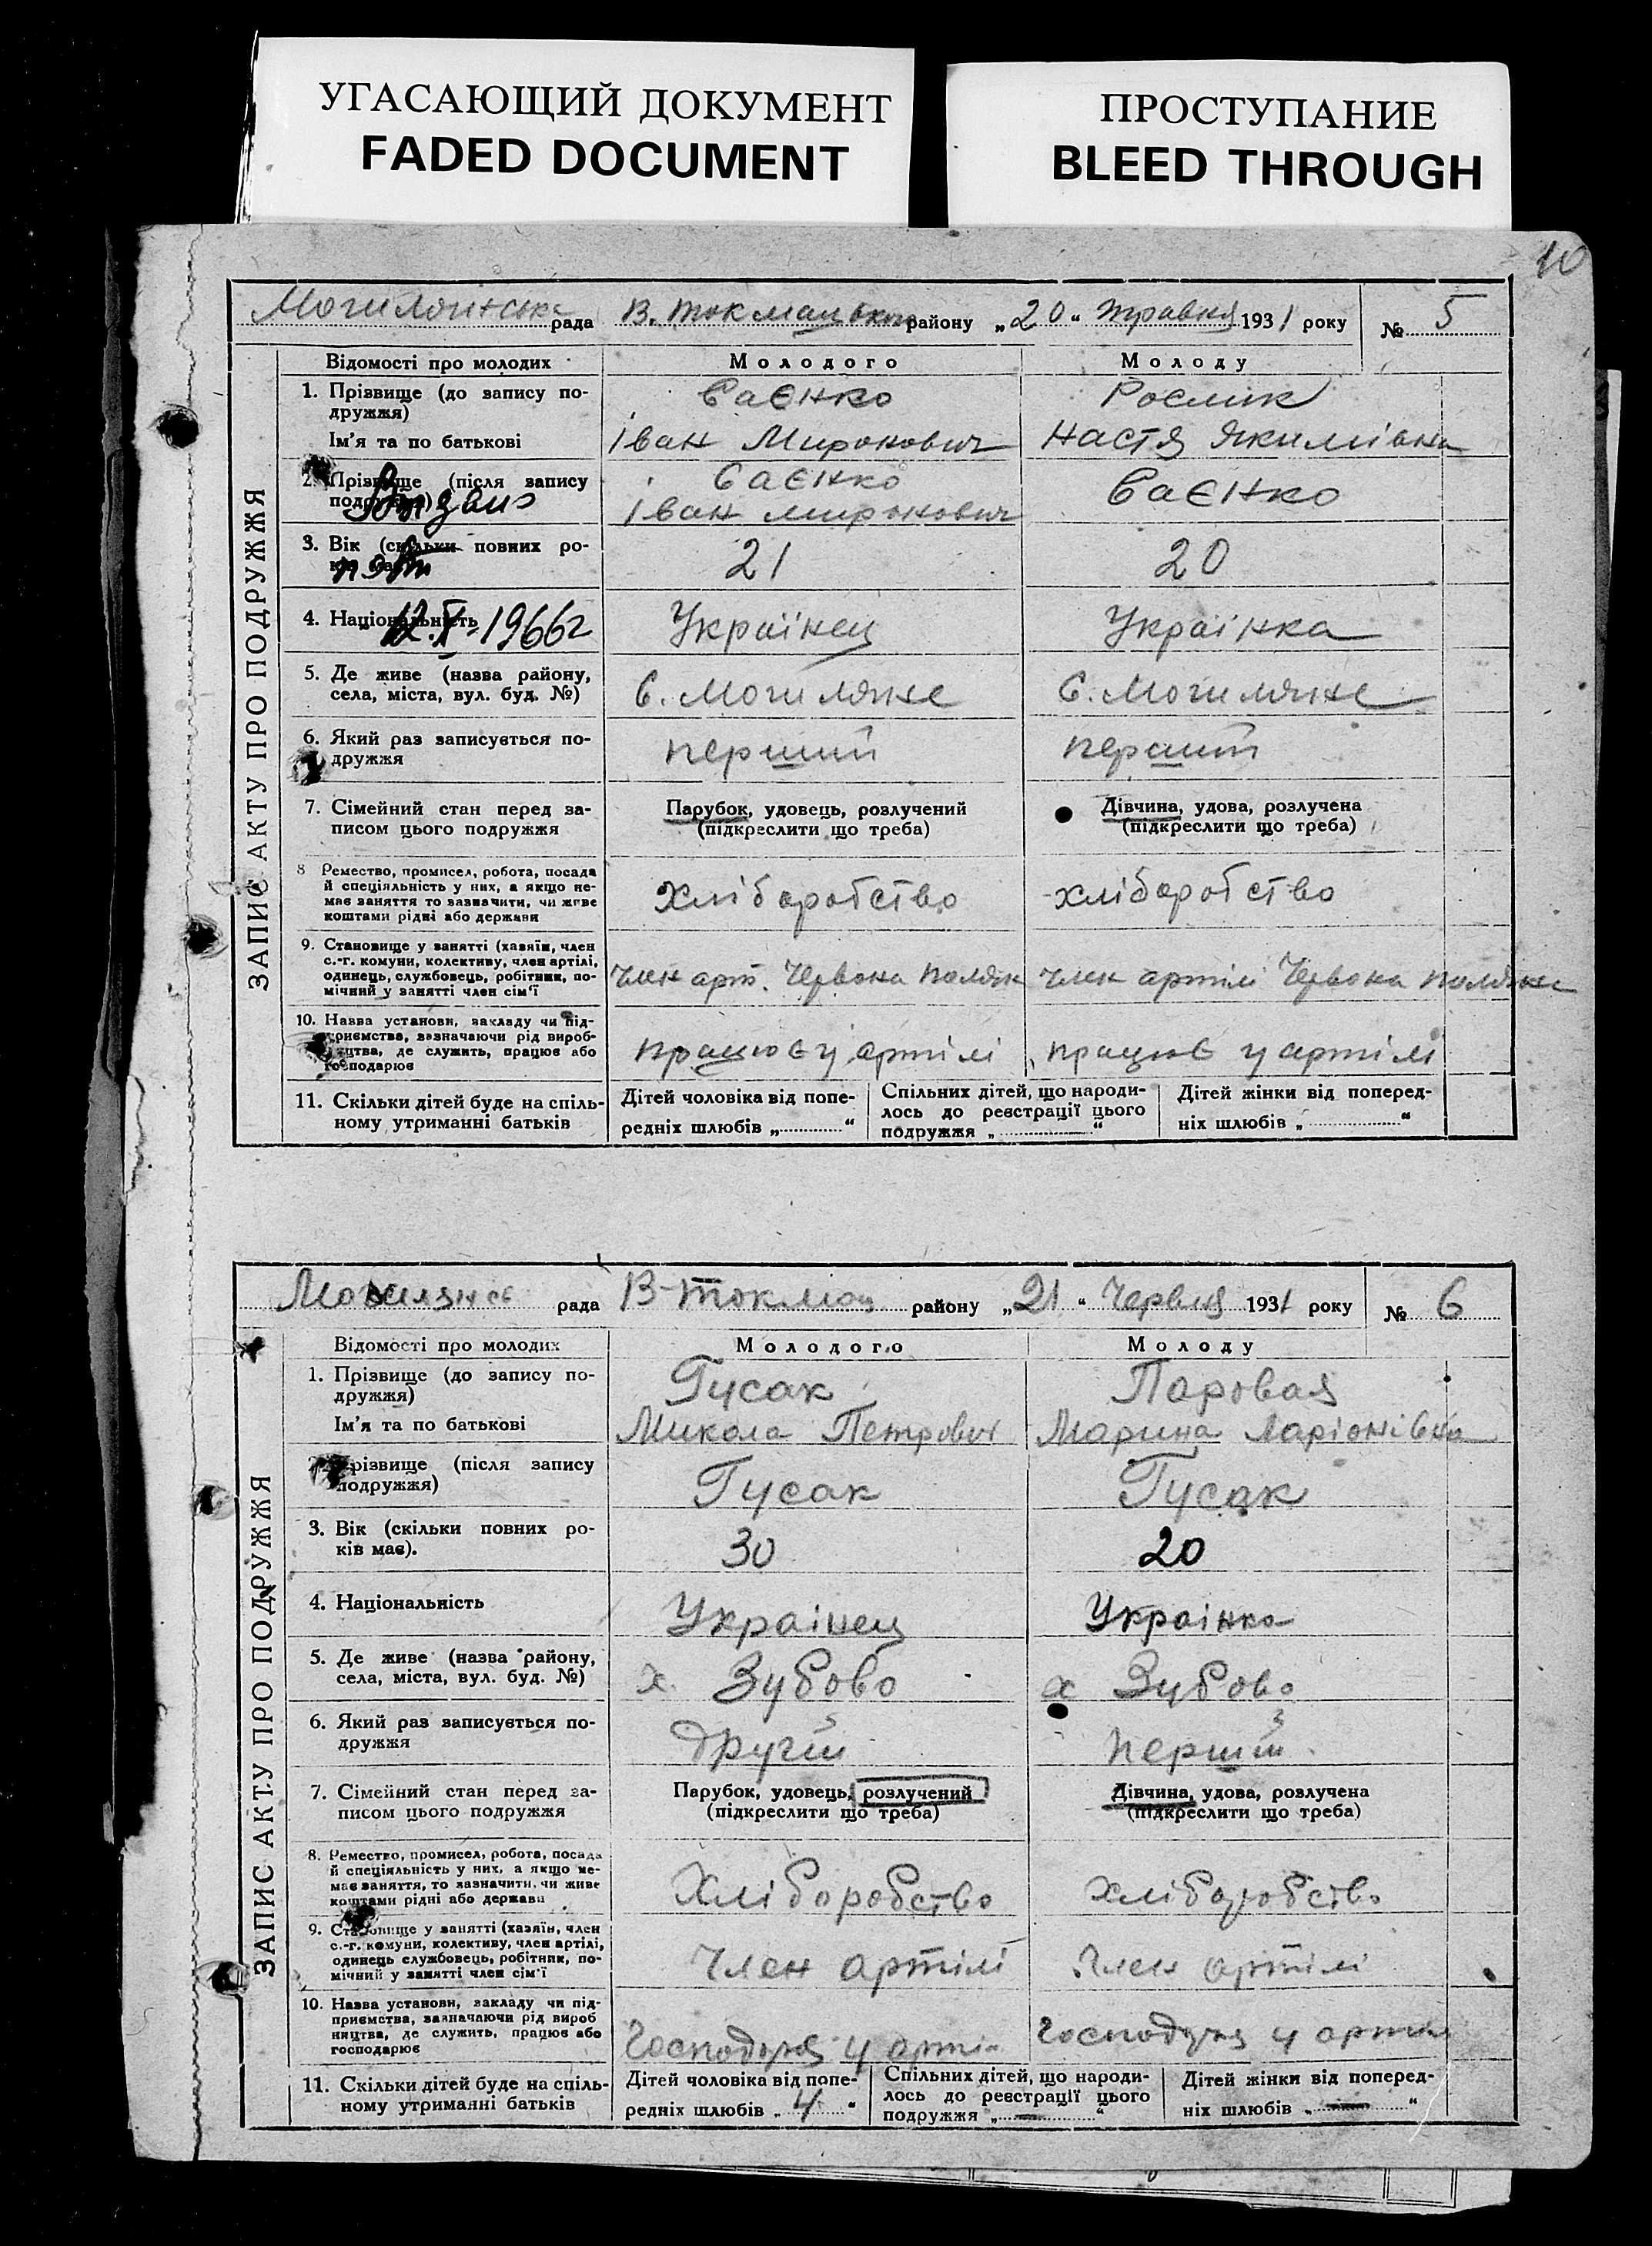 УГАСАЮЩИЙ ДОКУМЕНТ
FADED DOCUMENT
ПРОСТУПАНИЕ
BLEED THROUGH
10
Могилянська рада В. Токмацького району „20“ травня 1931 року № 5
ЗАПИС АКТУ ПРО ПОДРУЖЖЯ
Відомості про молодих Молодого Молоду
1. Прізвище (до запису по-
дружжя)
Саєнко
Рослик
Ім'я та по батькові
Іван Миронович
Настя Якимівна
2. Прізвище (після запису
подружжя)
Саєнко
Іван Миронович
Саєнко
3. Вік (скільки повних ро-
21
20
повт
12.X-1966г
4. Національність
Українец
Українка
5. Де живе (назва району,
села, міста, вул. буд. №)
С. Могиляне
С. Могиляне
6. Який раз записується по-
дружжя
перший
перший
7. Сімейний стан перед за-
писом цього подружжя
Парубок, удовець, розлучений
(підкреслити що треба)
Дівчина, удова, розлучена
(підкреслити що треба)
8 Ремество, промисел, робота, посада
й спеціяльність у них, а якщо не-
має заняття то зазначити, чи живе
коштами рідні або держави
Хліборобство
хліборобство
9. Становище у занятті (хазяїн, член
с.-г. комуни, колективу, член артілі,
одинець, службовець, робітник, по-
мічний у занятті член сім'ї
член арт. Червона Поляна
член артілі Червона Поляна
10. Назва установи, закладу чи під-
приємства, зазначаючи рід вироб-
ництва, де служить, працює або
господарює
працює у артілі
працює у артілі
11. Скільки дітей буде на спіль-
ному утриманні батьків
Дітей чоловіка від попе-
редніх шлюбів „ “
Спільних дітей, що народи-
лось до реєстрації цього
подружжя „ “
Дітей жінки від поперед-
ніх шлюбів „ “
Могилянсь рада В-Токмац району „21“ Червня 1931 року № 6
ЗАПИС АКТУ ПРО ПОДРУЖЖЯ
Відомості про молодих Молодого Молоду
1. Прізвище (до запису по-
дружжя)
Гусак
Паровая
Ім'я та по батькові
Микола Петрович
Марина Ларіонівна
Прізвище (після запису
подружжя)
Гусак
Гусак
3. Вік (скільки повних ро-
ків має).
30
20
4. Національність
Українец
Українка
5. Де живе (назва району,
села, міста, вул. буд. №)
х. Зубово
х Зубово
6. Який раз записується по-
дружжя
другій
Першій
7. Сімейний стан перед за-
писом цього подружжя
Парубок, удовець, розлучений
(підкреслити що треба)
Дівчина, удова, розлучена
(підкреслити що треба)
8. Ремество, промисел, робота, посада
й спеціяльність у них, а якщо не-
має заняття, то зазначити, чи живе
коштами рідні або держави
Хліборобство
хліборобство
9. Становище у занятті (хазяїн, член
с.-г. комуни, колективу, член артілі,
одинець службовець, робітник, по-
мічний у занятті член сім'ї
Член артілі
Член артілі
10. Назва установи, закладу чи під-
приємства, зазначаючи рід вироб
ництва, де служить, працює або
господарює
11. Скільки дітей буде на спіль-
ному утриманні батьків
Дітей чоловіка від попе-
редніх шлюбів „ 4 “
Спільних дітей, що народи-
лось до реєстрації цього
подружжя „ — “
Дітей жінки від поперед-
ніх шлюбів „ — “